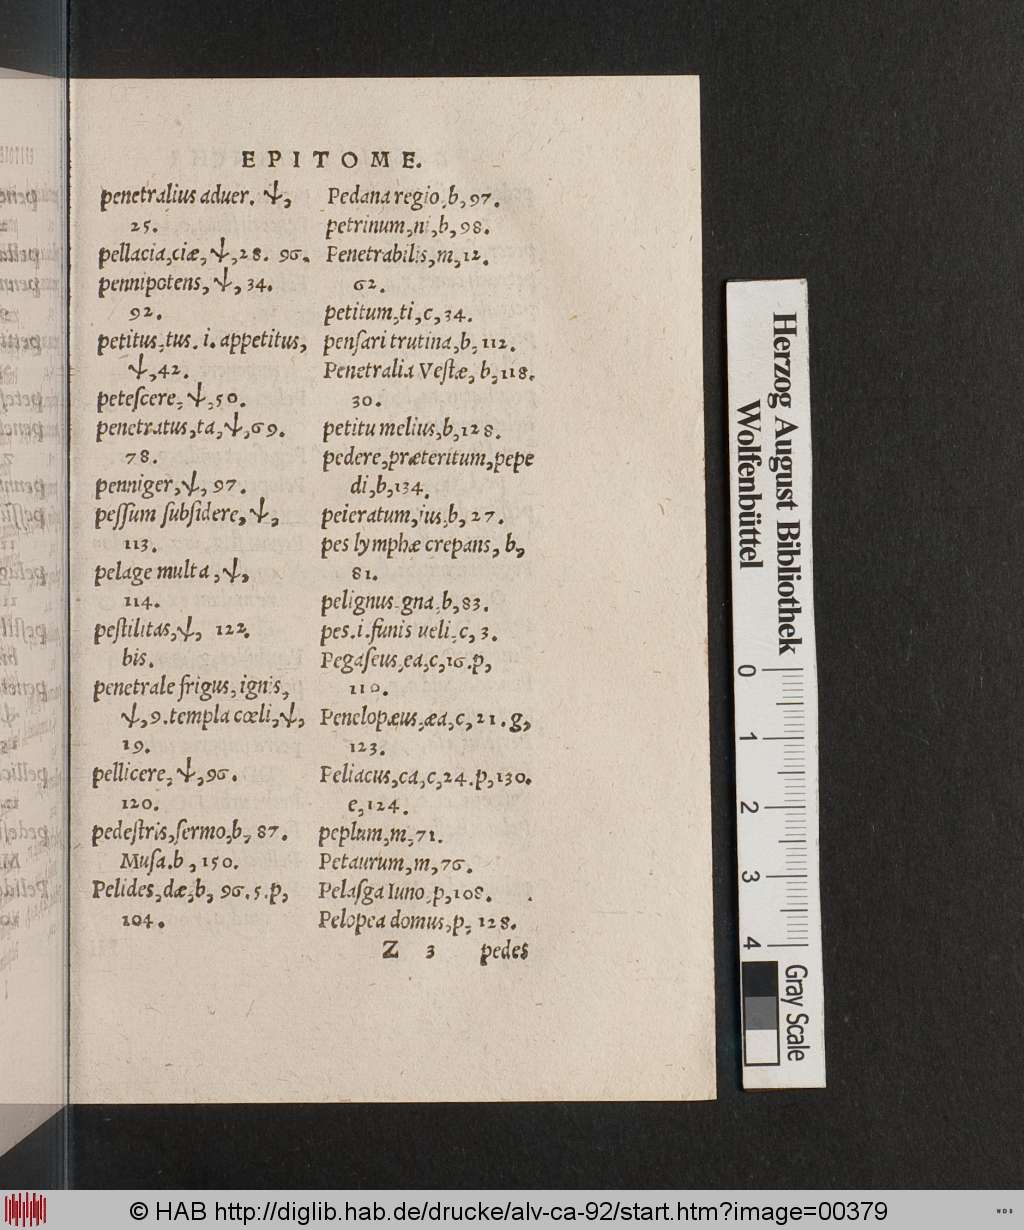 EPITOME.
penetralius aduer. ψ,
25.
pellacia, ciæ, ψ, 28. 96.
pennipotens, ψ, 34.
92.
petitus, tus. i. appetitus,
ψ, 42.
petescere, ψ, 50.
penetratus, ta, ψ, 69.
78.
penniger, ψ, 97.
peſſum ſubſidere, ψ,
113.
pelage multa, ψ,
114.
peſtilitas, ψ, 122.
bis.
penetrale frigus, ignis,
ψ, 9. templa cœli, ψ,
19.
pellicere, ψ, 96.
120.
pedeſtris, ſermo, b, 87.
Muſa. b, 150.
Pelides, dæ, b, 96. 5. p,
104.
Pedana regio, b, 97.
petrinum, ni, b, 98.
Penetrabilis, m, 12.
62.
petitum, ti, c, 34.
penſari trutina, b, 112.
Penetralia Veſtæ, b, 118.
30.
petitu melius, b, 128.
pedere, præteritum, pepe
di, b, 134.
peieratum, ius, b, 27.
pes lymphæ crepans, b,
81.
pelignus, gna, b, 83.
pes. i. funis ueli, c, 3.
Pegaſeus, ea, c, 16. p,
110.
Penelopæus, æa, c, 21. g,
123.
Peliacus, ca, c, 24. p, 130.
e, 124.
peplum, m, 71.
Petaurum, m, 76.
Pelaſga Iuno, p, 108.
Pelopea domus, p, 128.
Z 3 pedes
Herzog August Bibliothek
Wolfenbüttel
0 1 2 3 4
Gray Scale
© HAB http://diglib.hab.de/drucke/alv-ca-92/start.htm?image=00379